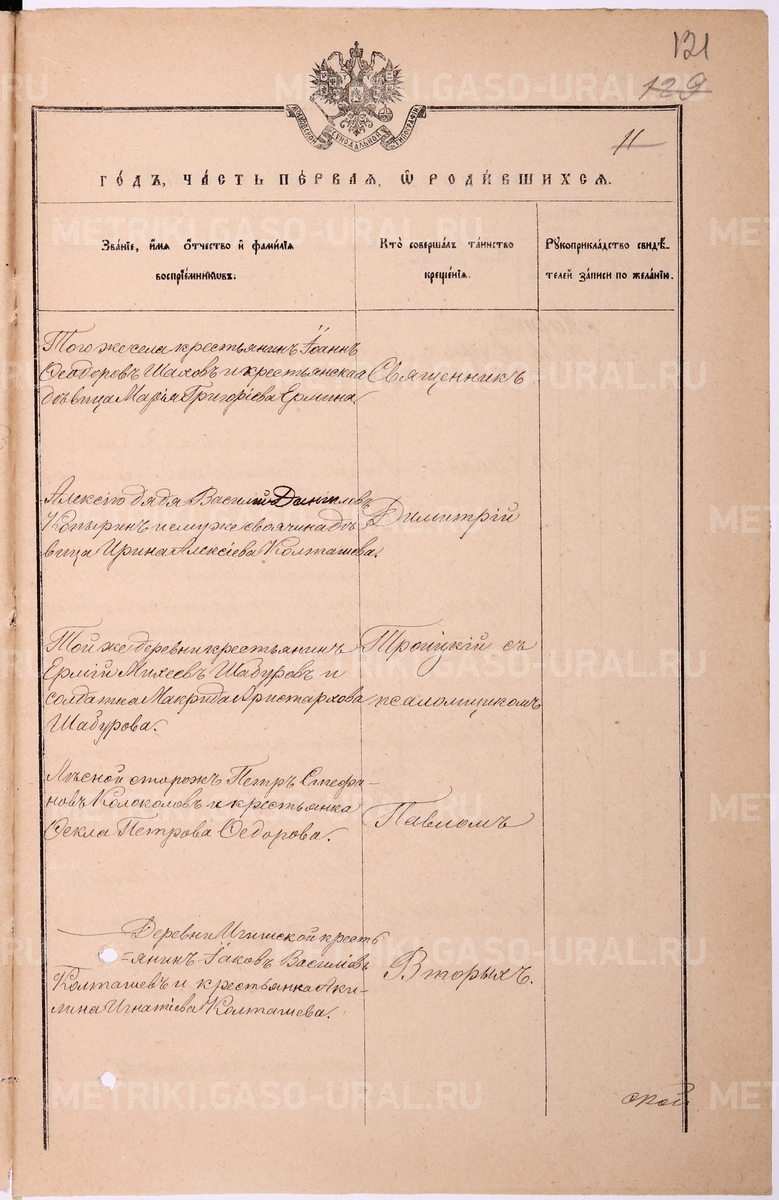 121
129
11
МОСКОВСКОЙ СѴНОДАЛЬНОЙ ТИПОГРАФІИ
ГО́ДЪ, ЧА́СТЬ ПЕ́РВАЯ, Ѿ РОДИ́ВШИХСЯ.
Зва́нїе, и́мя о́тчество и҆ фами́лїя
воспрїе́мниковъ.
Кто̀ соверша́лъ та́инство
креще́нїя.
Рꙋкоприкла́дство свидѣ́-
телей за́писи по жела́нїю.
Того же села крестьянинъ Іоаннъ
Ѳеодоровъ Шаховъ и крестьянская
дѣвица Марія Григоріева Ермина.
Священникъ
Алексію дядя Василій Даниловъ
Копыринъ и ему же своячина дѣ-
вица Ирина Алексіева Колташева.
Димитрій
Той же деревни крестьянинъ
Ермій Михеевъ Шабуровъ и
солдатка Макрида Аристархова
Шабурова.
Троицкій съ
псаломщикомъ
Лѣсной сторожъ Петръ Стефа-
новъ Колоколовъ и крестьянка
Ѳекла Петрова Ѳедорова.
Павломъ
Деревни Игишской кресть
-янинъ Іаковъ Василіевъ
Колташевъ и крестьянка Аки-
лина Игнатіева Колташева.
Вторыхъ.
METRIKI.GASO-URAL.RU